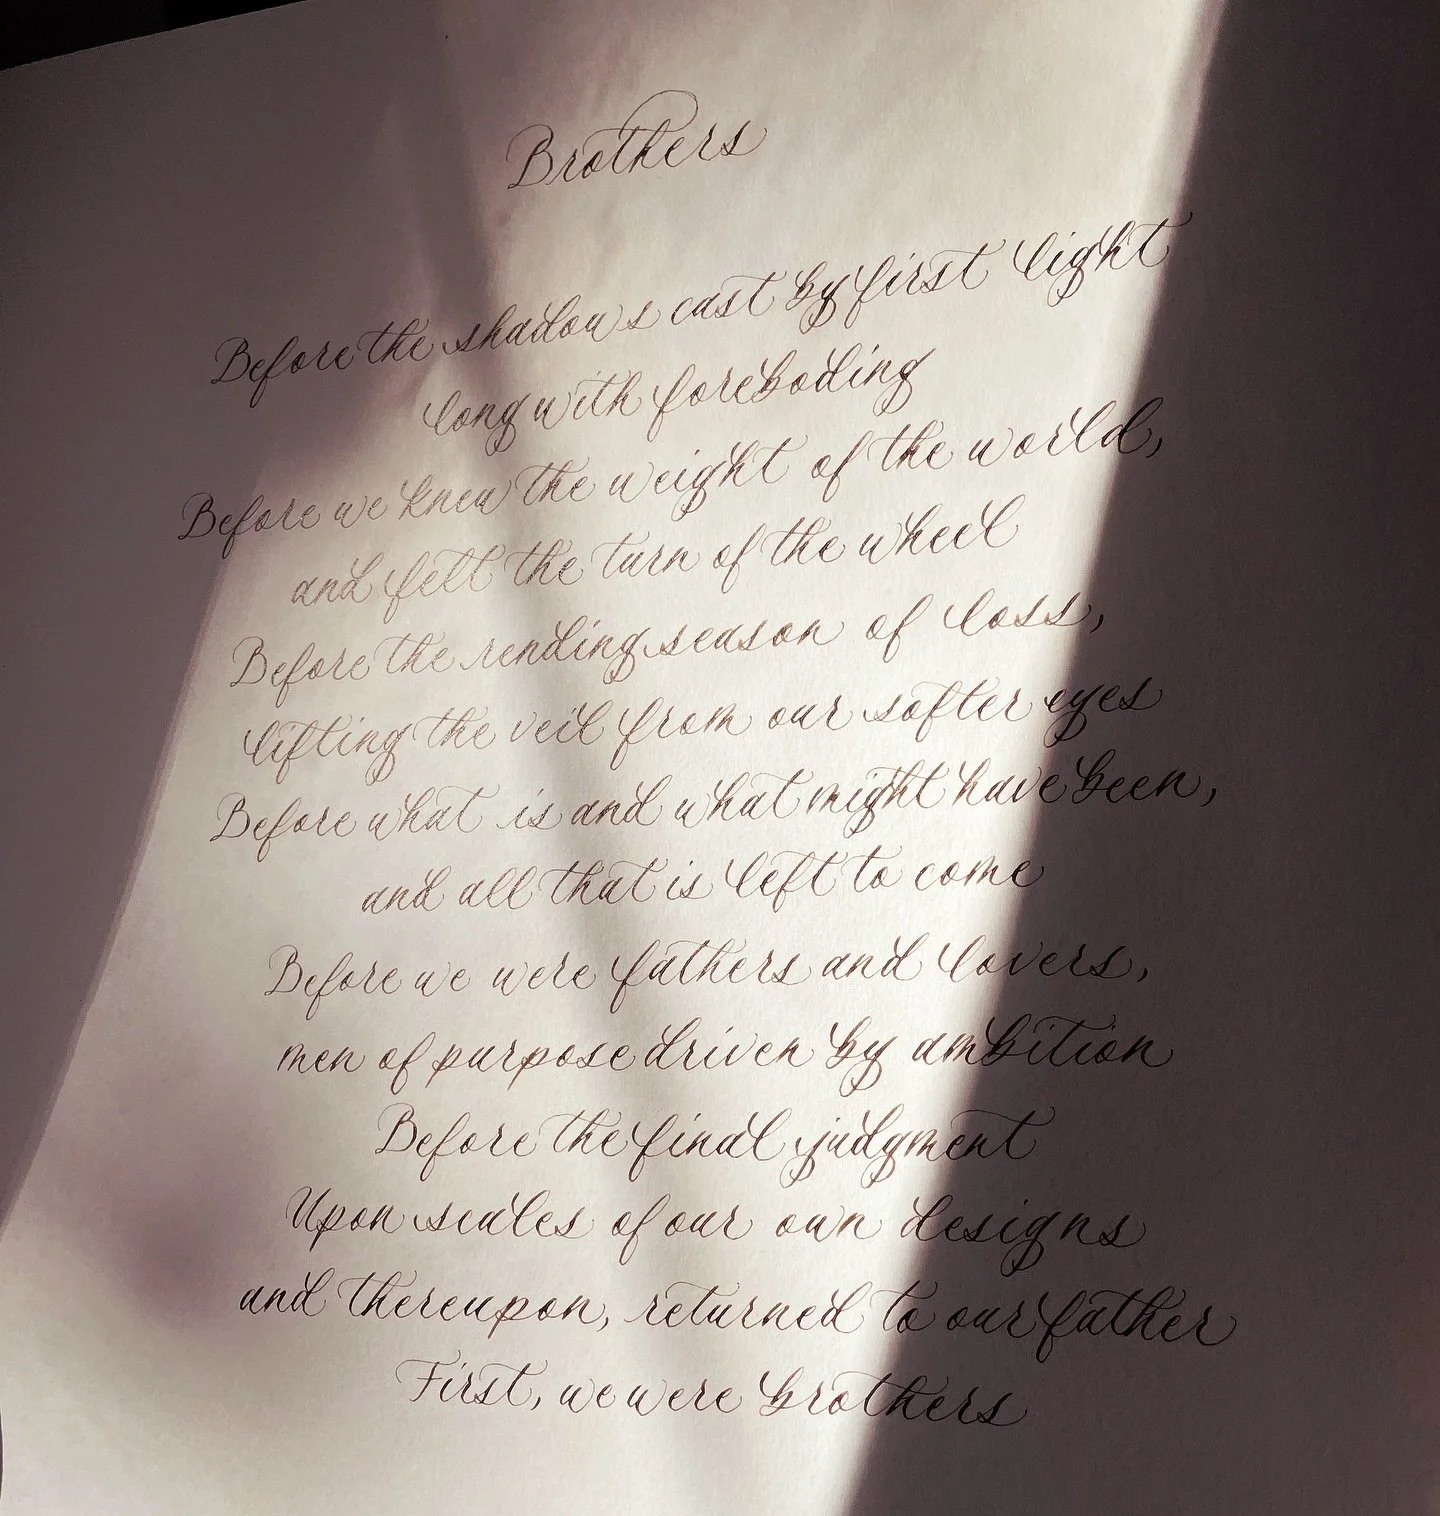 Brothers
Before the shadows cast by first light
long with foreboding
Before we knew the weight of the world,
and felt the turn of the wheel
Before the rending season of loss,
lifting the veil from our softer eyes
Before what is and what might have been,
and all that is left to come
Before we were fathers and lovers,
men of purpose driven by ambition
Before the final judgment
Upon scales of our own designs
and thereupon, returned to our father
First, we were brothers